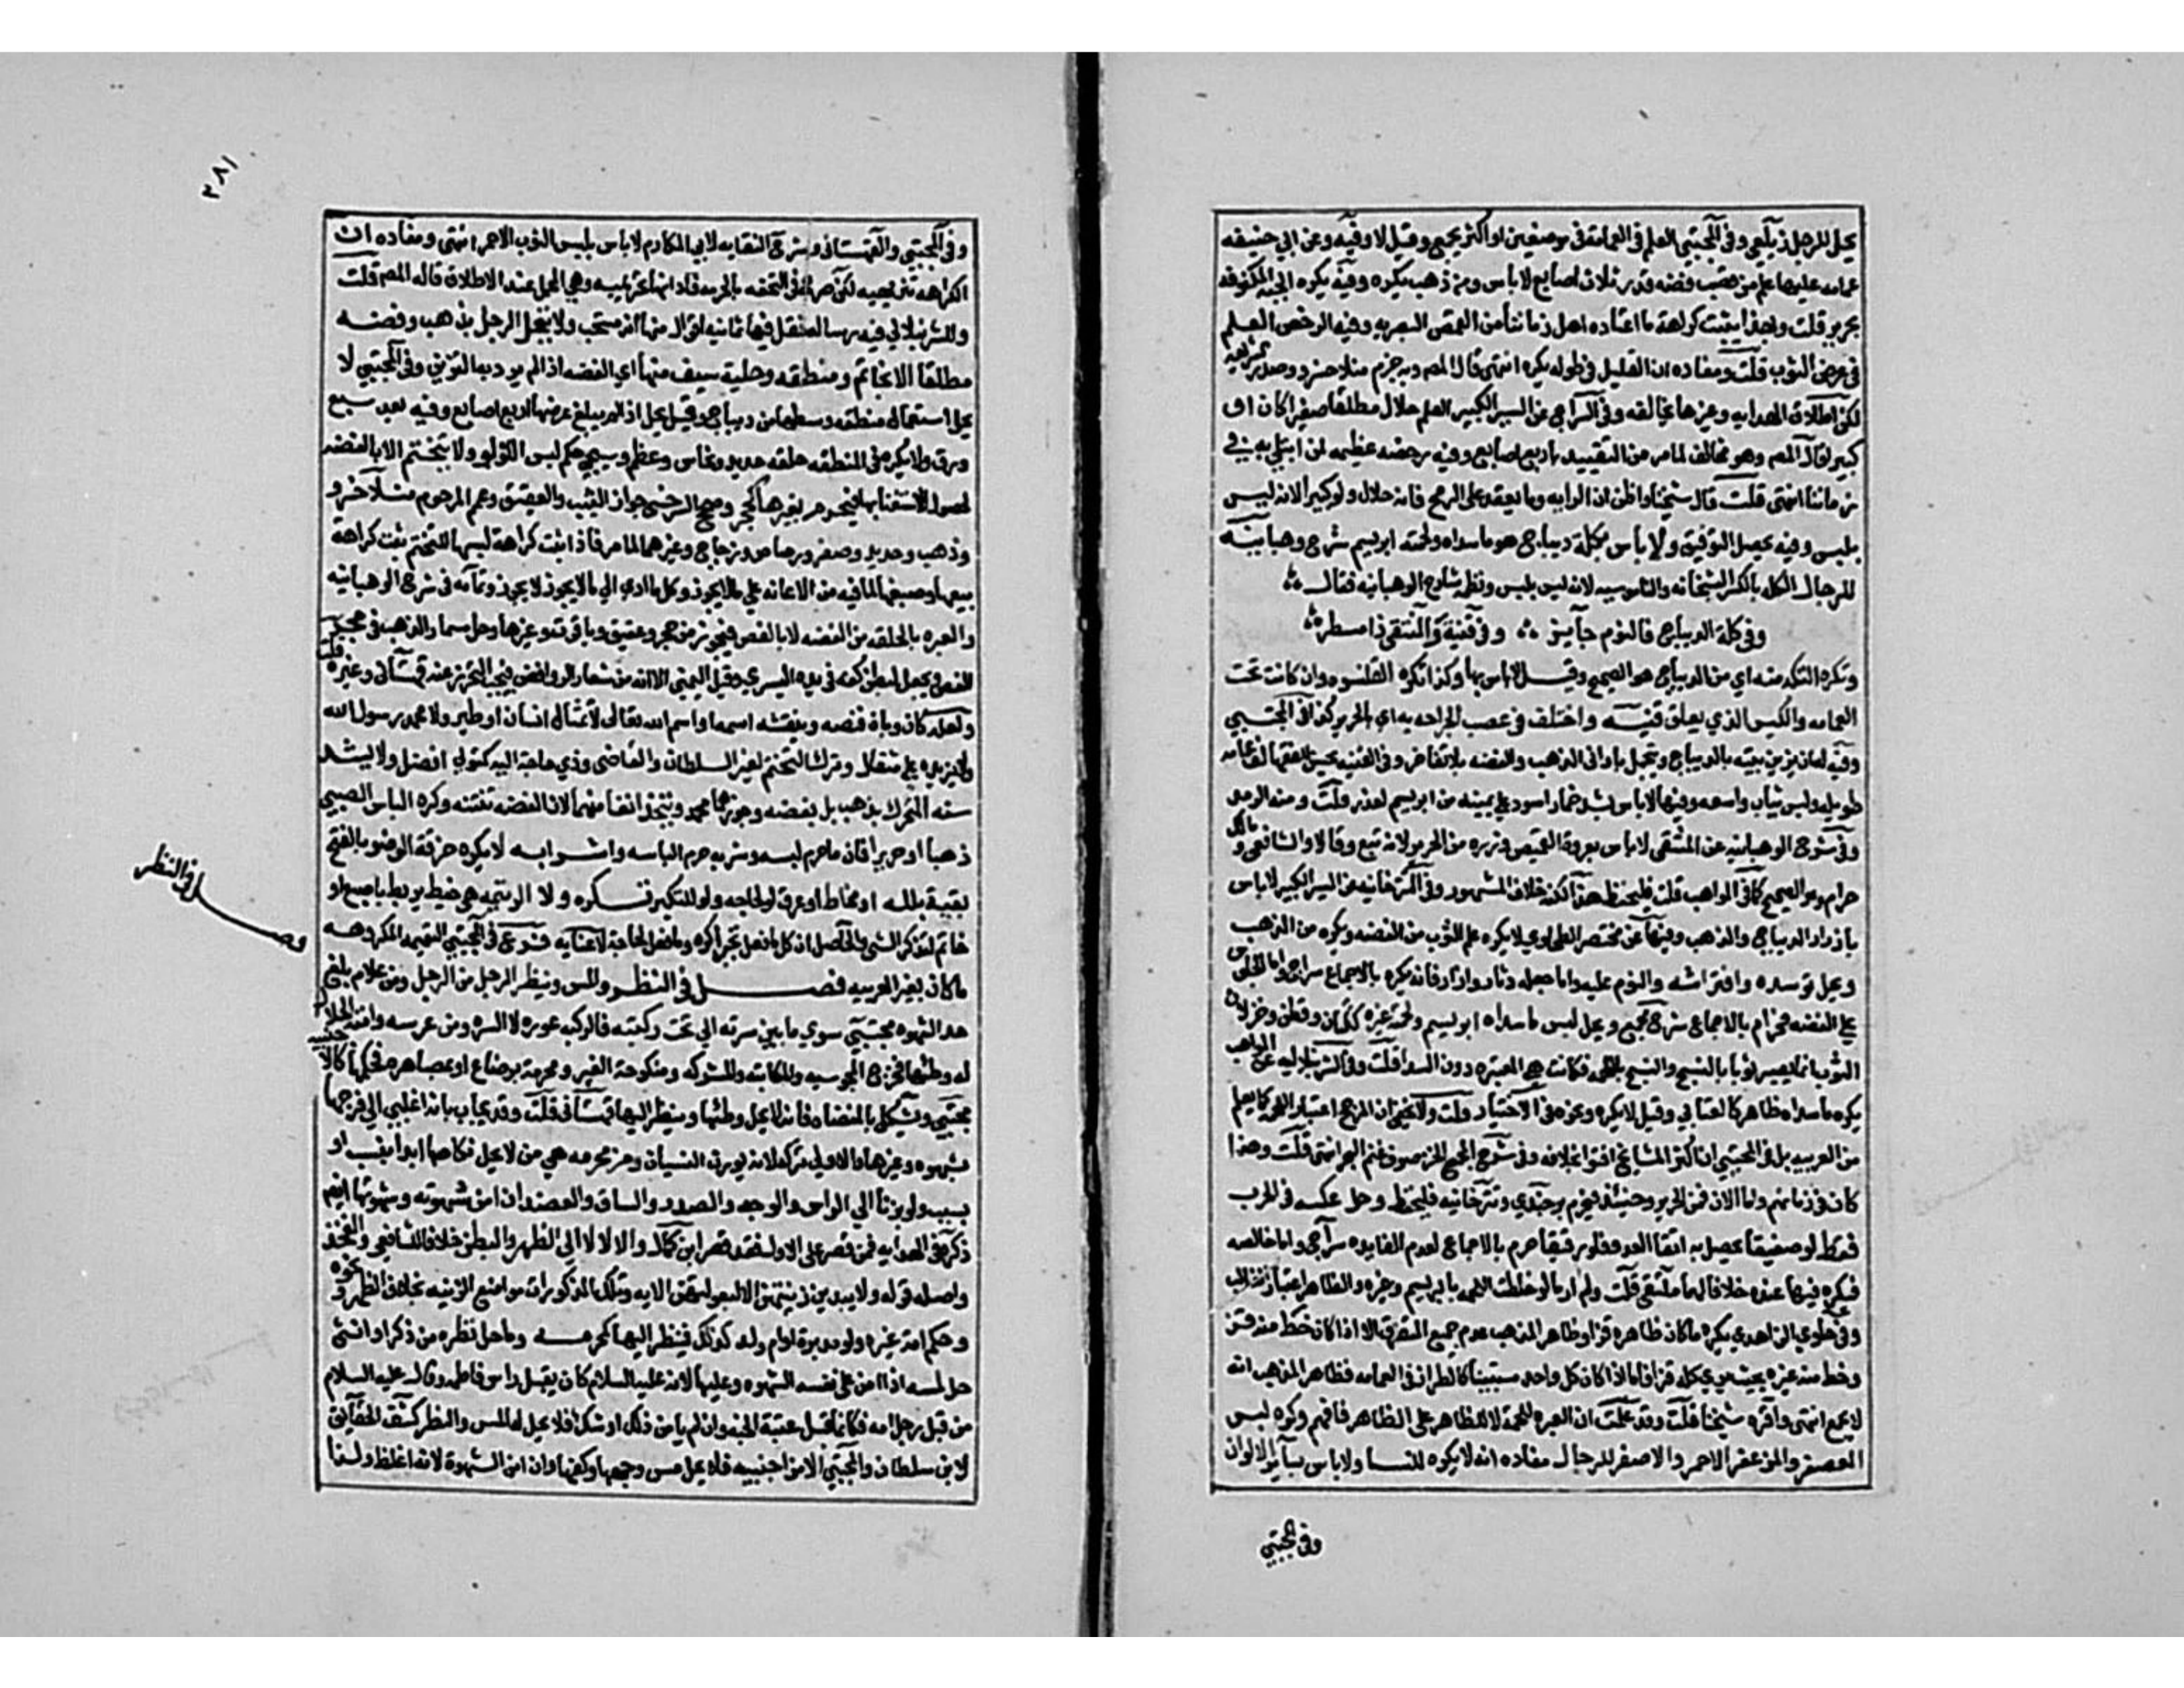 يحل للرجل زيلعي وفي المجتبى العلم في العمامة في موضعين او اكثر يجمع وقيل لا وفيه وعن ابي حنيفه
عمامه عليها علم من قصب فضه قدر ثلاث اصابع لا باس ومن ذهب يكره وفيه يكره الجبه المكفوفه
بحرير قلت وبهذا يثبت كراهة ما اعتاده اهل زماننا من القمص البصريه وفيه الرخص العلم
في عرض الثوب قلت ومفاده ان القليل في طوله يكره انتهى قال المص وبه جزم منلا خسرو وصدر الشريعه
لكن اطلاق الهدايه وغيرها يخالفه وفي السراج عن السير الكبير العلم حلال مطلقا صغيرا كان او
كبيرا قال المص وهو مخالف لما مر من التقييد باربع اصابع وفيه رخصه عظيمه لمن ابتلي به في
زماننا انتهى قلت قال شيخنا واظن ان الرايه وما يعقد على الرمح فانه حلال ولو كبيرا لانه ليس
بلبس وفيه يحصل التوفيق ولا باس بكلة ديباج هو ما سداه ولحمته ابريسم شرح وهبانيه
للرجال الكله بالكسر البشخانه والناموسيه لانه ليس بلبس ونظمه شارح الوهبانيه فقال
وفي كلة الديباج فالنوم جايز وفي قنية والمنتقى ذا مسطر
وتكره التكه منه اي من الديباج هو الصحيح وقيل لا باس بها وكذا تكره القلنسوه وان كانت تحت
العمامه والكيس الذي يعلق قنيه واختلف في عصب الجراحه به اي بالحرير كذا في المجتبى
وفيه له ان يزين بيته بالديباج ويتجمل باواني الذهب والفضه بلا تفاخر وفي القنيه يحسن للفقها لف عمامه
طويله ولبس ثياب واسعه وفيها لا باس بشد خمار اسود على عينيه من ابريسم لعذر قلت ومنه الرمد
وفي شرح الوهبانيه عن المنتقى لا باس بعروة القميص وزره من الحرير لانه تبع وقالا والشافعي ومالك
حرام وهو الصحيح كما في المواهب قلت فليحفظ هذا لكنه خلاف المشهور وفي التترخانيه عن السير الكبير لا باس
بازرار الديباج والذهب وفيها عن مختصر الطحاوي لا يكره علم الثوب من الفضه ويكره من الذهب
ويحل توسده وافتراشه والنوم عليه واما جعله دثارا وازارا فانه يكره بالاجماع سراج واما الجلوس
على الفضه فحرام بالاجماع شرح مجمع ويحل لبس ما سداه ابريسم ولحمته غيره ككتان وقطن وخز لان
الثوب انما يصير ثوبا بالنسج والنسج باللحمه فكانت هي المعتبره دون السدا قلت وفي الشرنبلاليه عن المواهب
يكره ما سداه ظاهر كالعتابي وقيل لا يكره ونحوه في الاختيار قلت ولا يخفى ان المرجح اعتبار اللحمه كما يعلم
من العزميه بل في المجتبى ان اكثر المشايخ افتوا بخلافه وفي شرح المجمع الخز صوف غنم البحر انتهى قلت وهذا
كان في زمانهم واما الان فمن الحرير وحينئذ فيحرم برجندي وتترخانيه فليحفظ وحل عكسه في الحرب
فقط لو صفيقا يحصل به اتقا العدو فلو رقيقا حرم بالاجماع لعدم الفايده سراج واما خالصه
فيكره فيها عنده خلافا لهما ملتقى قلت ولم ار ما لو خلطت اللحمه بابريسم وغيره والظاهر اعتبار الغالب
وفي حاوي الزاهدي يكره ما كان ظاهره قز او ظاهر المذهب عدم جمع المتفرق الا اذا كان خط منه قز
وخط منه غيره بحيث يرى كله قز فاما اذا كان كل واحد مستبينا كالطراز في العمامه فظاهر المذهب انه
لا يجمع انتهى واقره شيخنا قلت وقد علمت ان العبره للحمة لا للظاهر على الظاهر فافهم وكره لبس
المعصفر والمزعفر الاحمر والاصفر للرجال مفاده انه لا يكره للنسا ولا باس بساير الالوان
وفي المجتبى
٣٨١
وفي المجتبى والقهستاني وشرح النقايه لابي المكارم لا باس بلبس الثوب الاحمر انتهى ومفاده ان
الكراهه تنزيهيه لكن صرح في التحفه بالحرمه فافاد انها تحريميه وهي المحمل عند الاطلاق قاله المص قلت
وللشرنبلالي فيه رسالة نقل فيها ثمانيه اقوال منها انه مستحب ولا يتحلى الرجل بذهب وفضه
مطلقا الا بخاتم ومنطقه وحلية سيف منها اي الفضه اذا لم يرد به التزين وفي المجتبى لا
يحل استعمال منطقه وسطها من ديباج وقيل يحل اذا لم يبلغ عرضها اربع اصابع وفيه بعد سبع
ورق ولا يكره في المنطقه حلقه حديد ونحاس وعظم وسيجي حكم لبس اللؤلؤ ولا يتختم الا بالفضه
لحصول الاستغنا بها فيحرم بغيرها كحجر وصحح السرخسي جواز اليشب والعقيق وعمم المرحوم منلا خسرو
وذهب وحديد وصفر ورصاص وزجاج وغيرها لما مر فاذا ثبت كراهة لبسها للتختم ثبت كراهة
بيعها وصيغها لما فيه من الاعانه على ما لا يجوز وكل ما ادى الي ما لا يجوز لا يجوز وتمامه في شرح الوهبانيه
والعبره بالحلقه من الفضه لا بالفص فيجوز من حجر وعقيق وياقوت وغيرها وحل مسمار الذهب في حجر
الفص ويجعل لبطن كفه في يده اليسرى وقيل اليمنى الا انه من شعار الروافض فيجب التحرز عنه قهستاني وغيره قلت
ولعله كان وبان فضه وينقشه اسمه او اسم الله تعالى لا تمثال انسان او طير ولا محمد رسول الله
ولا يزيده على مثقال وترك التختم لغير السلطان والقاضي وذي حاجة اليه كتولي افضل ولا يشد
سنه المتحرك بذهب بل بفضه وجوزهما محمد ويتخذ انفا منهما لان الفضه تنتنه وكره الباس الصبي
ذهبا او حريرا فان ما حرم لبسه وشربه حرم الباسه واشرابه لا يكره خرقة الوضو بالفتح
بقية بلله او مخاط او عرق لو لحاجه ولو للتكبر تكره ولا الرتيمه هي خيط يربط باصبع او
خاتم لتذكر الشي والحاصل ان كل ما فعل تجبرا كره وما فعل لحاجة لا عنايه فروع في المجتبى التميمه المكروهه
ما كان بغير العربيه فصل في النظر والمس وينظر الرجل من الرجل ومن غلام بلغ
حد الشهوه مجتبى سوي ما بين سرته الي تحت ركبته فالركبه عوره لا السره ومن عرسه وامته الحلال
له وطئها فخرج المجوسيه والمكاتبه والمشركه ومنكوحة الغير ومحرمة برضاع او مصاهره فحكمها كالاجنبيه
مجتبى ويشكل بالمفضاه فانه لا يحل وطئها وينظر اليها قهستاني قلت وقد يجاب بانه اغلبي الي فرجها
بشهوه وغيرها والاولي تركه لانه يورث النسيان ومن محرمه هي من لا يحل نكاحها ابدا بنسب او
بسبب ولو بزنا الي الراس والوجه والصدر والساق والعضد ان امن شهوته وشهوتها ايضا
ذكره في الهدايه فمن قصر على الاول فقد قصر ابن كمال والا لا لا الي الظهر والبطن خلافا للشافعي والفخذ
واصله قوله ولا يبدين زينتهن الا لبعولتهن الايه وتلك المذكورات مواضع الزينه بخلاف الظهر ونحوه
وحكم امة غيره ولو مدبرة او ام ولد كذلك فينظر اليها كمحرمه وما حل نظره من ذكر او انثى
حل لمسه اذا امن على نفسه الشهوه وعليها لانه عليه السلام كان يقبل راس فاطمه وقال عليه السلام
من قبل رجل امه فكانما قبل عتبة الجنه وان لم يامن ذلك او شك فلا يحل له المس والنظر كشف الحقايق
لابن سلطان والمجتبى الا من اجنبيه فلا يحل مس وجهها وكفها وان امن الشهوة لانه اغلظ ولذا
فصل في النظر